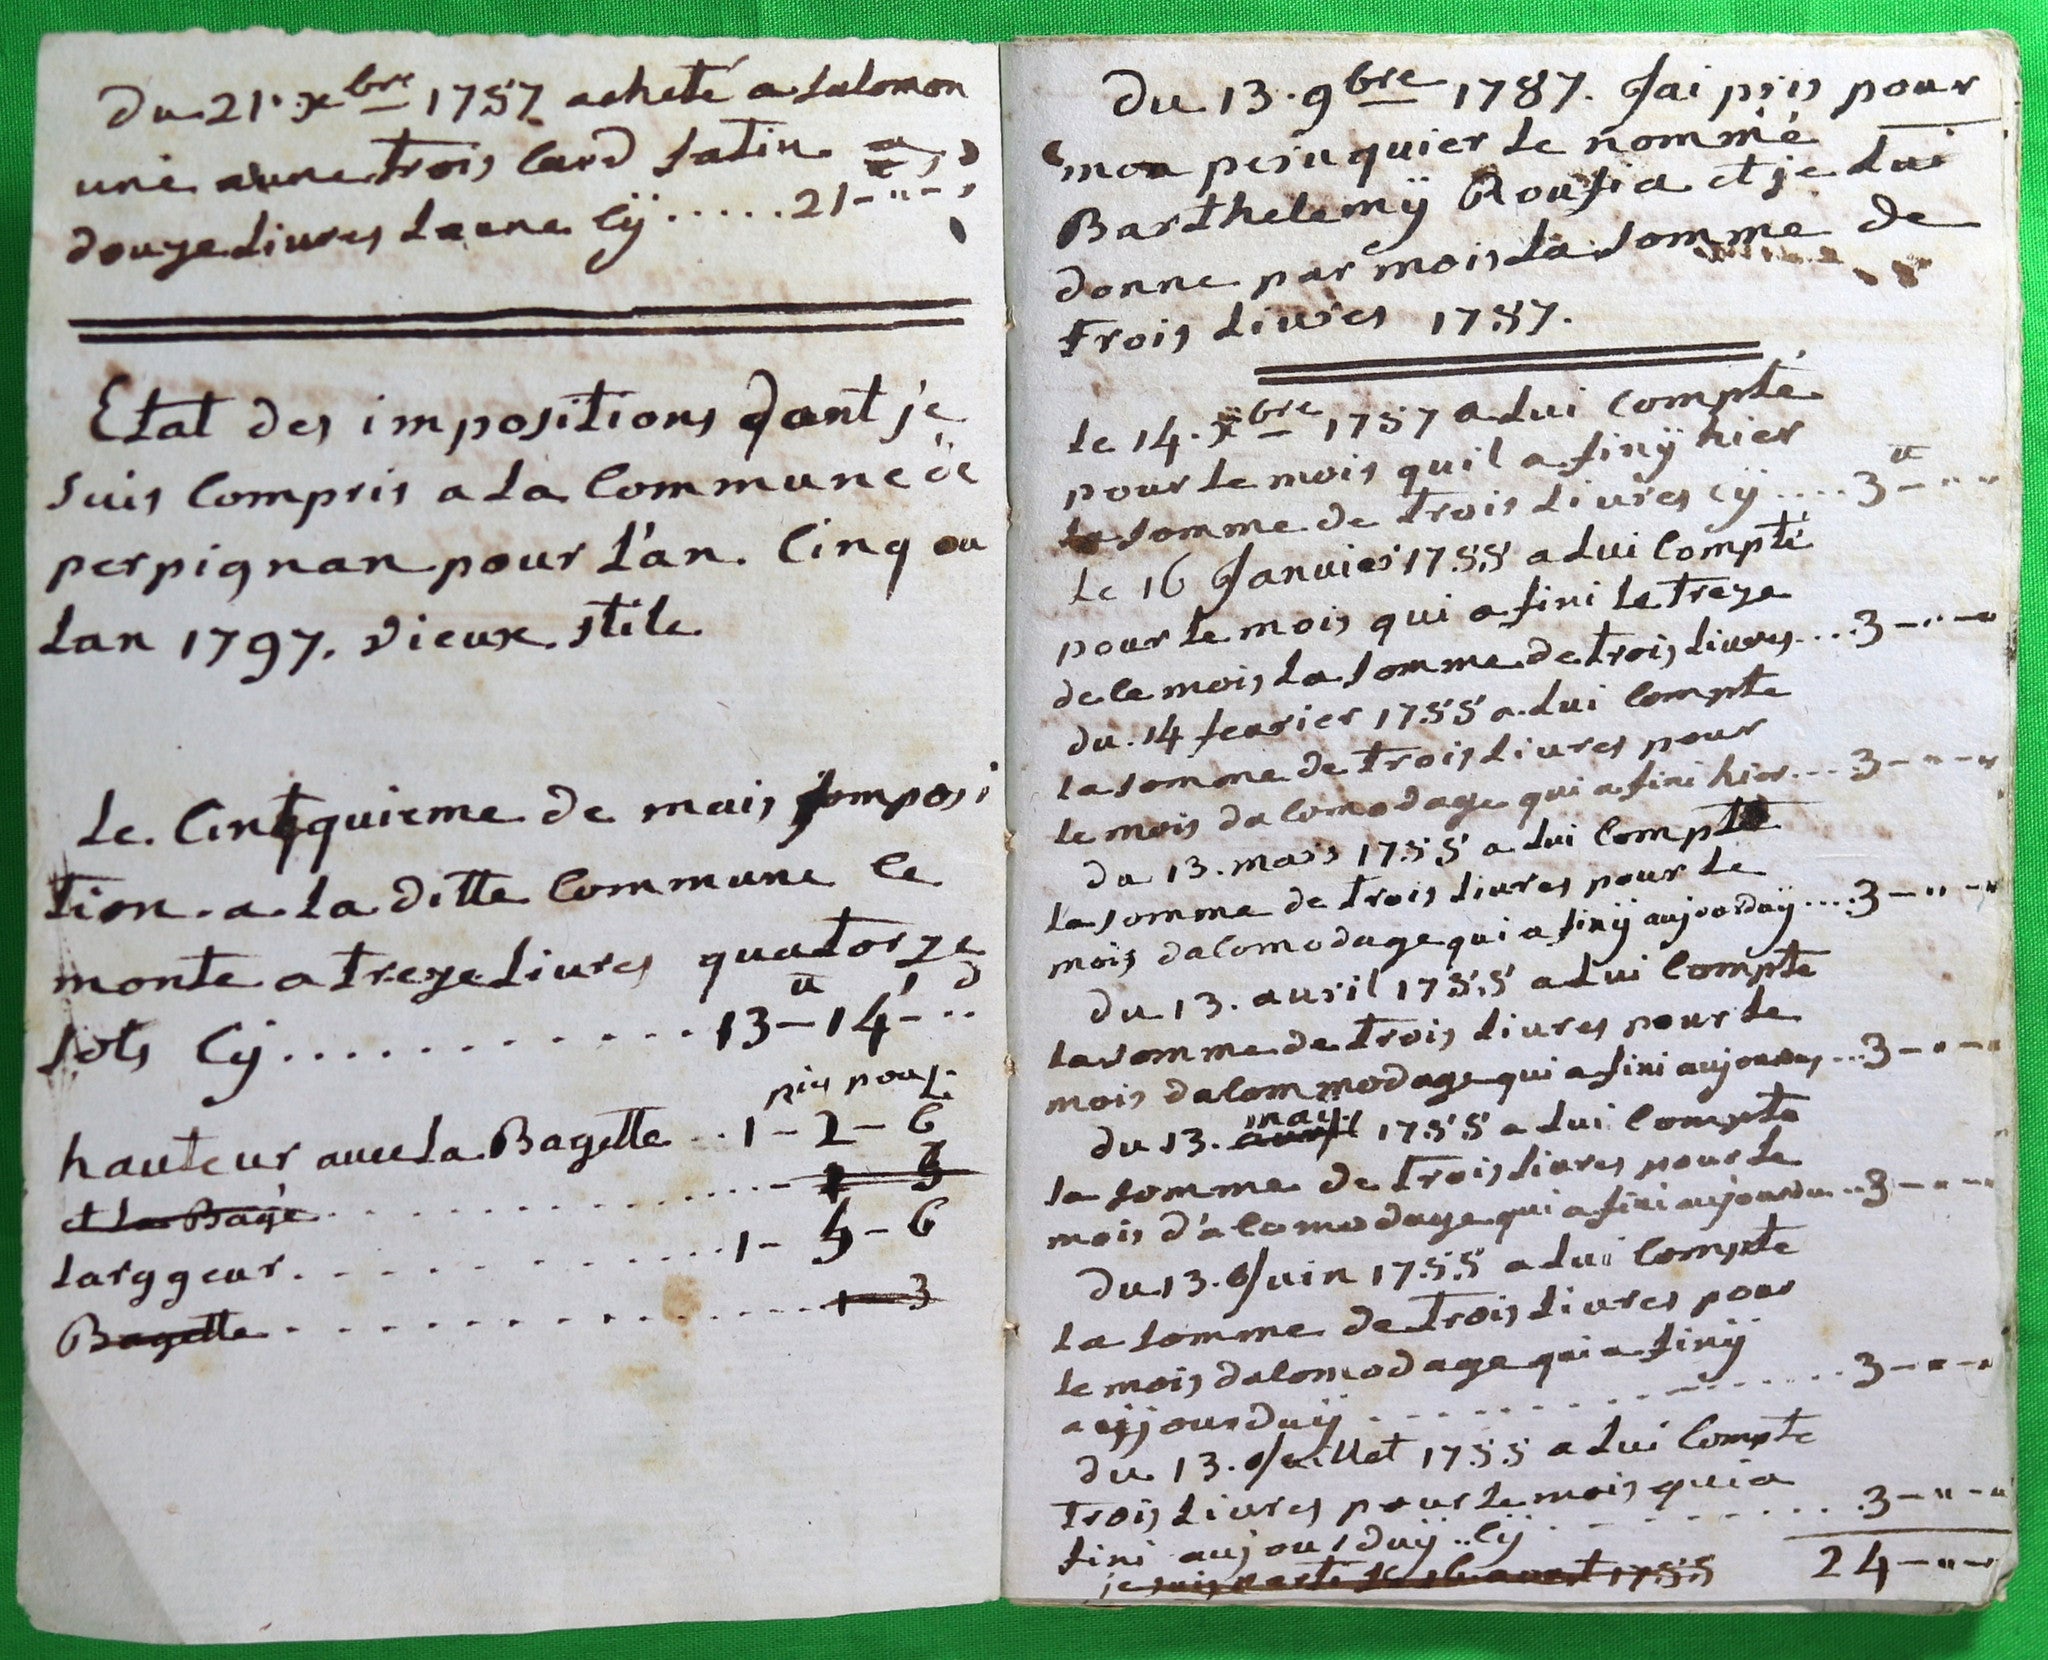 Du 21. xbre 1787 acheté a Salomon
une aune trois card Satin
douze Livres Laune Cÿ ..... 21 - " - "
Etat des impositions dont je
suis Compris a La Commune de
perpignan pour L'an. Cinq ou
Lan 1797. vieux stile
Le. Cintquieme de mais Jomposi
tion. a. La ditte Commune ce
monte a treze Livres quatorze
sols Cÿ ............ 13 - 14 - ..
pies pouz.
hauteur avec La Bagette .. 1 - 2 - 6
et La Bage ............ - 1 3
Larggeur ............ 1 - 5 - 6
Bagette ............ 1 - 3
Du 13. 9bre 1787. Jai pris pour
mon peruquier Le nommé
Barthelemÿ Roufia et je Lui
donne par mois La somme de
trois Livres 1787.
Le 14. xbre 1787 a Lui Compté
pour Le mois quil a finÿ hier
La somme de trois Livres Cÿ .... 3 - " "
Le 16 Janvier 1788 a Lui Compté
pour Le mois qui a fini Le treze
de ce mois La somme de trois Livres .... 3 - " - "
du. 14 fevrier 1788 a. Lui Compte
La somme de trois Livres pour
Le mois dacomodage qui a fini hier ... 3 - " - "
du 13. mars 1788 a Lui Compte
La somme de trois Livres pour Le
mois dacomodage qui a finÿ aujourduÿ .... 3 - " - "
du 13. avril 1788 a Lui Compte
La somme de trois Livres pour Le
mois dacommodage qui a fini aujourduy ... 3 - " - "
du 13. avril may 1788 a Lui Compte
La somme de trois Livres pour Le
mois d'acomodage qui a fini aujourdu .. 3 - " - "
du 13. Juin 1788 a Lui Compte
La somme de trois Livres pour
Le mois dacomodage qui a finÿ
aujjourduÿ ............ 3 - " - "
du 13. Juillet 1788 a Lui Compte
trois Livres pour Le mois qui a
fini aujourduÿ .. Cÿ ............ 3 - " - "
je suis 1788 24 - " - "